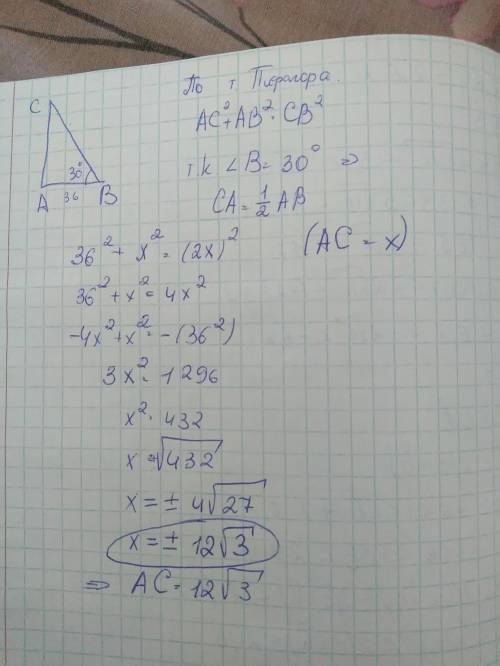 По т Пифагора.
AC²+AB²=CB²
C
т.к ∠B=30° ⇒
30°
A 36 B
CA=½AB
36²+x²=(2x)²
(AC=x)
36²+x²=4x²
-4x²+x²=-(36²)
3x²=1296
x²=432
x=√432
x=±4√27
x=±12√3
⇒ AC=12√3